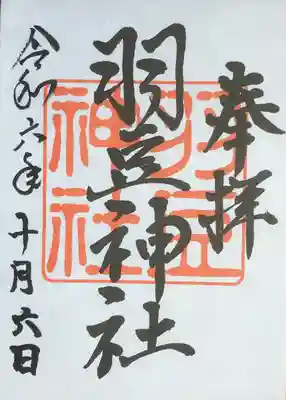 奉拝
羽豆神社
羽豆神社
令和六年十月六日